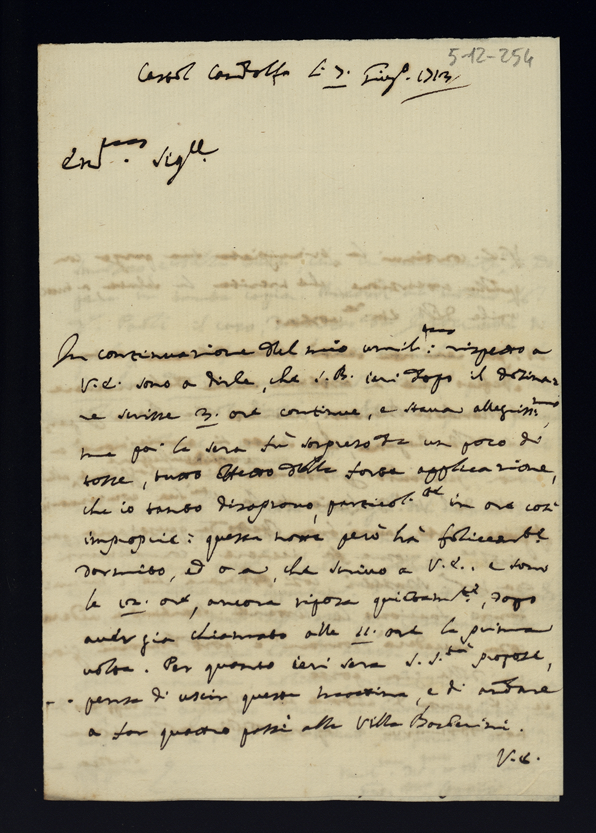 5-12-254
Castel Gandolfo li 7. Giug.o 1713
Em.mo Sig.re
In continuazione del mio umil.mo rispetto a
V.E. sono a dirle, che S.B. ieri dopo il desina=
re scrisse 3. ore continue, e stava allegriss.mo,
ma poi la sera fù sorpreso da un poco di
tosse, tutto effetto della forte applicazione,
che io tanto disapprovo, particol.te in ore così
improprie: questa notte però hà felicem.te
dormito, ed ora, che scrivo a V.E., e sono
le 12. ore, ancora riposa quietam.te, dopo
aver già chiamato alle 11. ore la prima
volta. Per quanto ieri sera S. S.tà propose,
pensa di uscir questa mattina, e di andare
a far quattro passi alla Villa Barberini.
V.E.